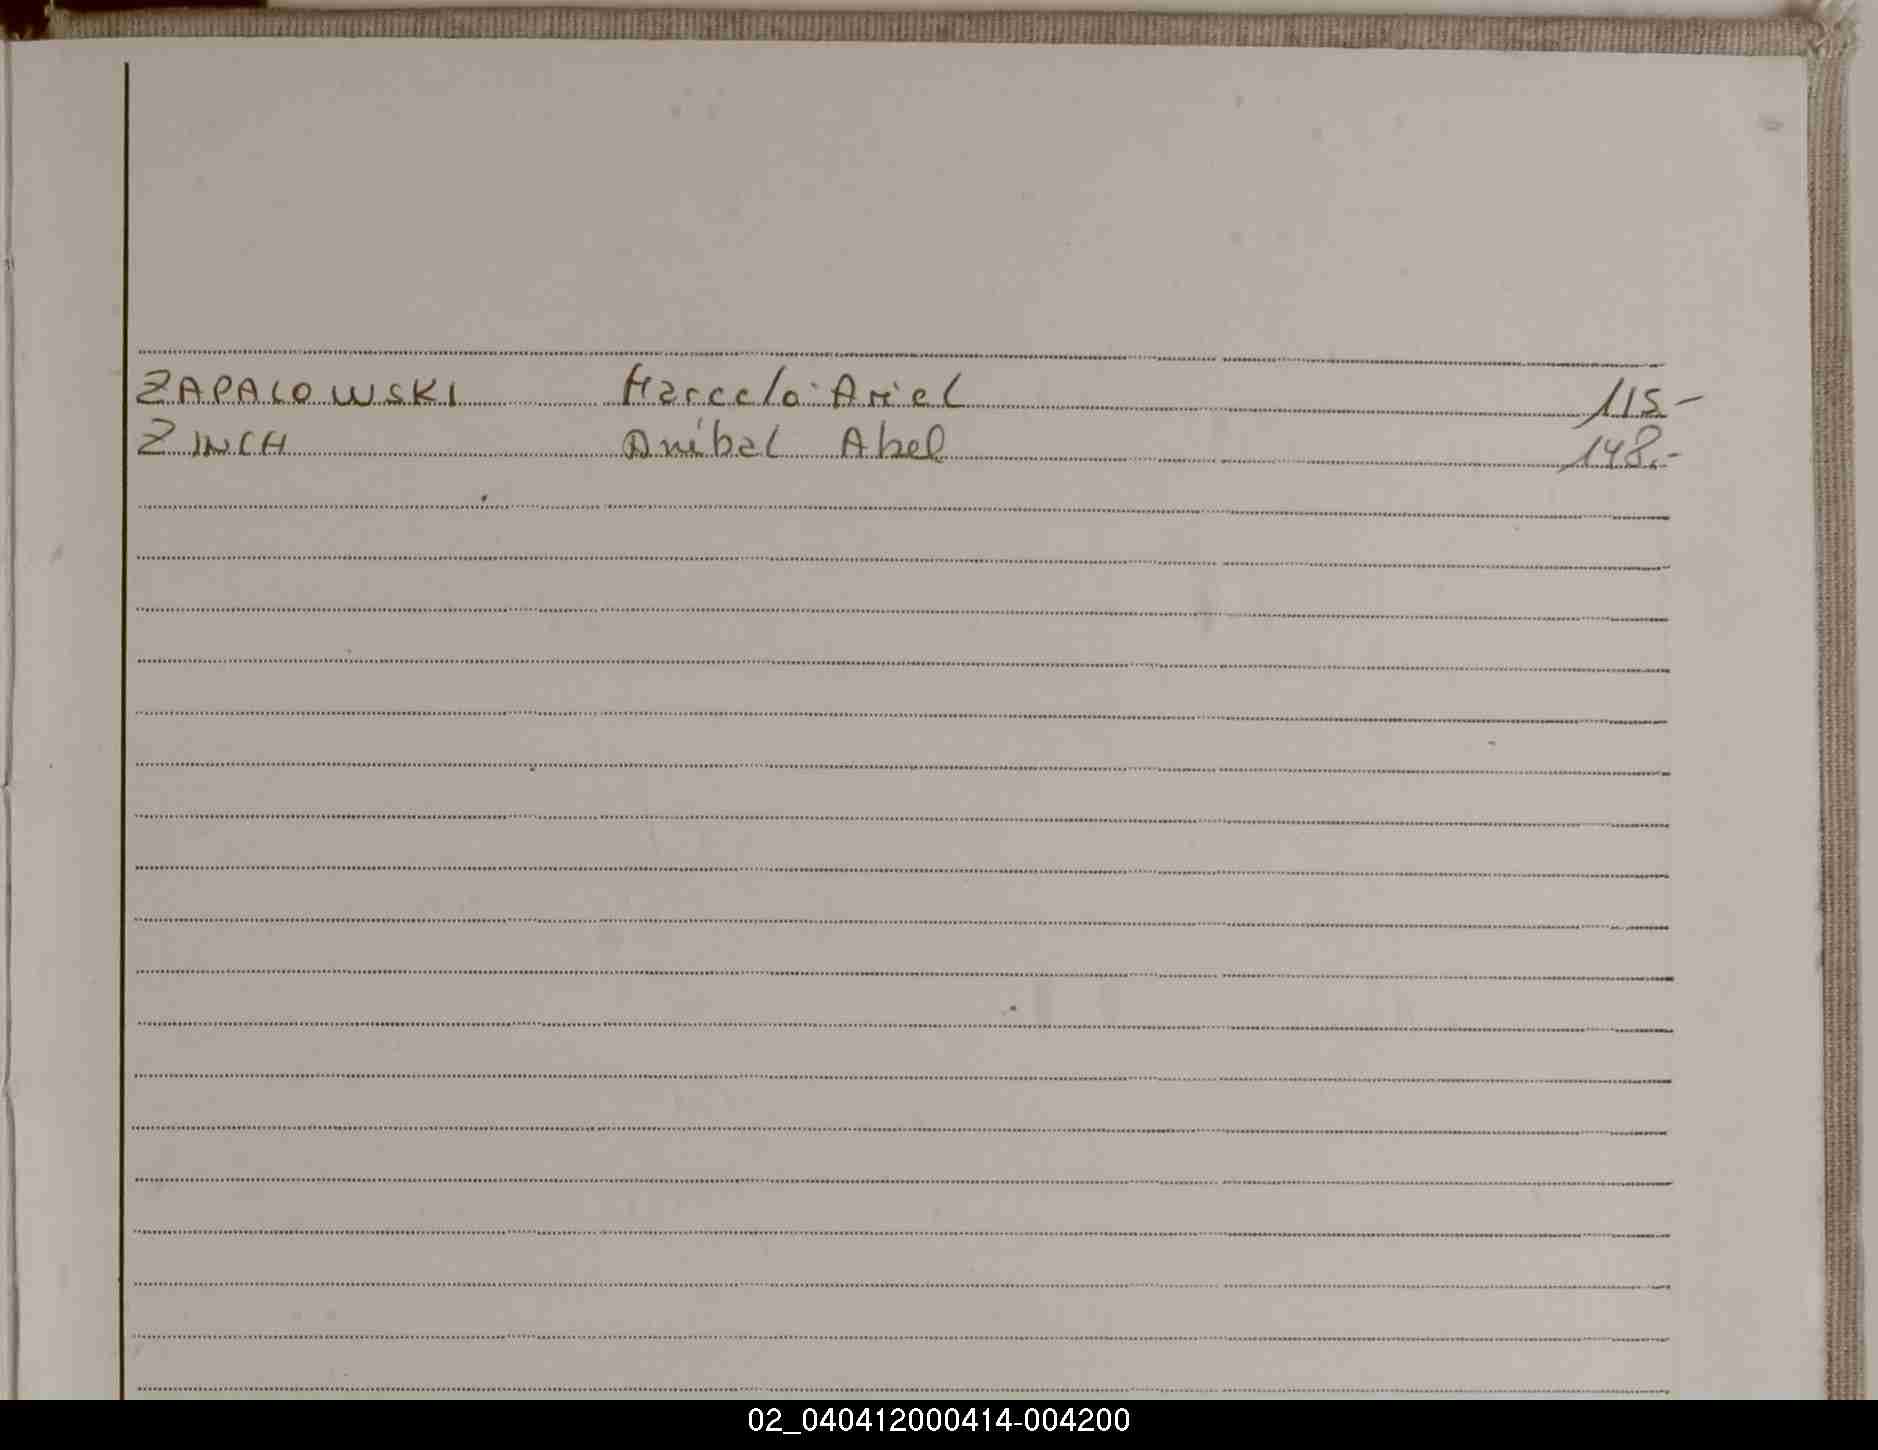 ZAPALOWSKI Marcelo Ariel 115-
ZINCH Anibal Abel 148.-
02_040412000414-004200